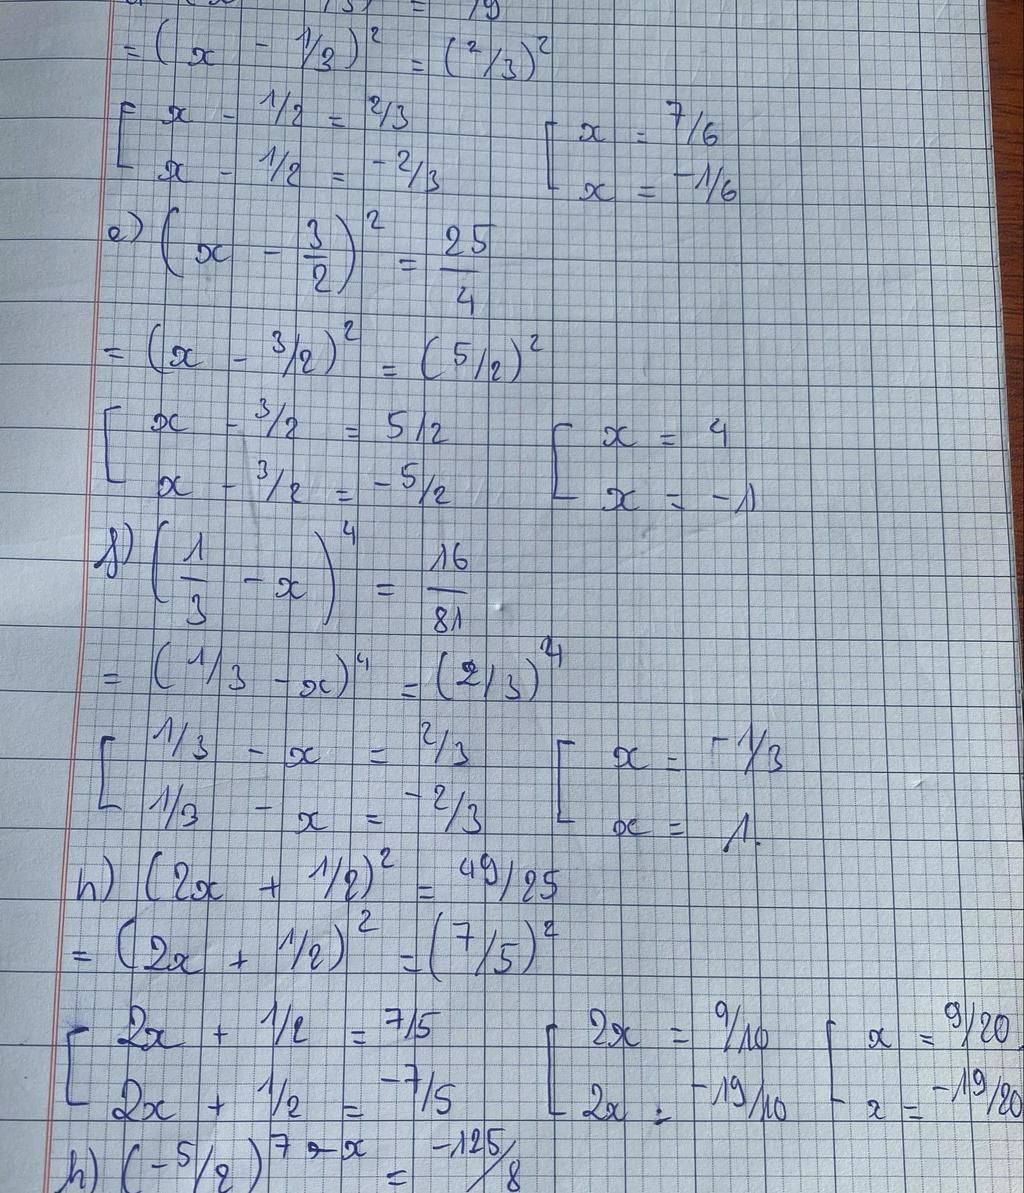 = (x - 1/3)² = (2/3)²
[ x - 1/2 = 2/3 [ x = 7/6
x - 1/2 = -2/3 x = -1/6
e) (x - 3/2)² = 25/4
= (x - 3/2)² = (5/2)²
[ x - 3/2 = 5/2 [ x = 4
x - 3/2 = -5/2 x = -1
g) (1/3 - x)⁴ = 16/81
= (1/3 - x)⁴ = (2/3)⁴
[ 1/3 - x = 2/3 [ x = -1/3
1/3 - x = -2/3 x = 1
h) (2x + 1/2)² = 49/25
= (2x + 1/2)² = (7/5)²
[ 2x + 1/2 = 7/5 [ 2x = 9/10 [ x = 9/20
2x + 1/2 = -7/5 2x = -19/10 x = -19/20
h) (-5/2)⁷⁻ˣ = -125/8